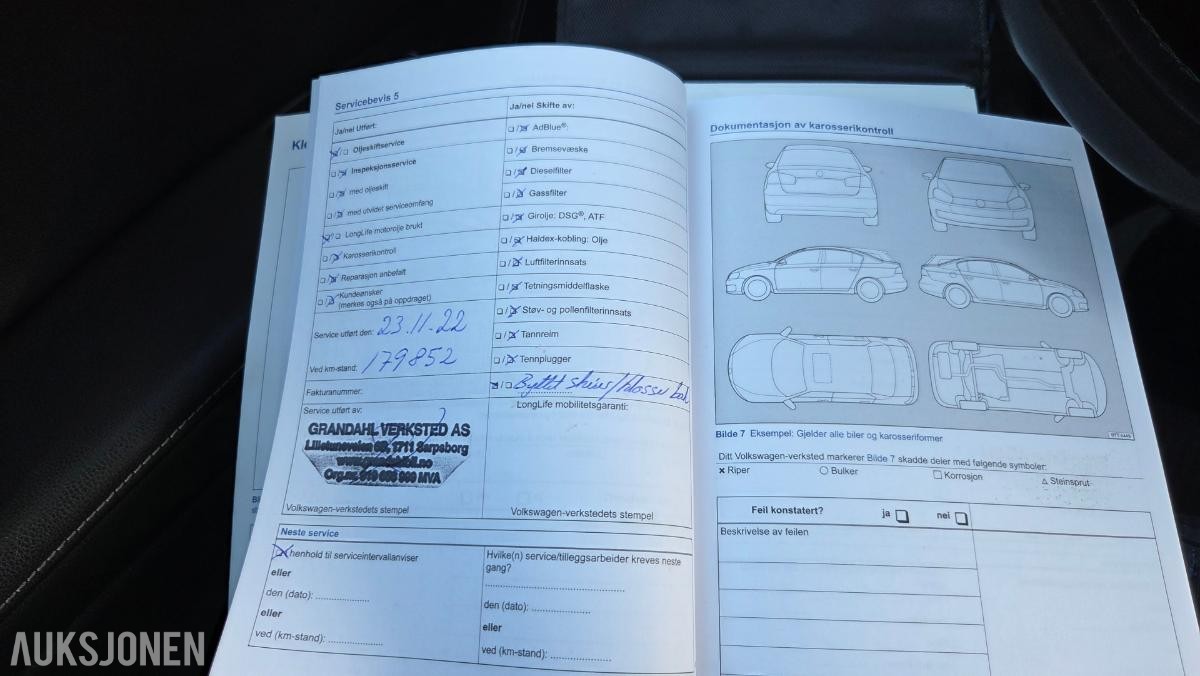 Kl
Servicebevis 5
Ja/nei Utført:
Oljeskiftservice
Inspeksjonsservice
med oljeskift
med utvidet serviceomfang
LongLife motorolje brukt
Karosserikontroll
Reparasjon anbefalt
Kundeønsker
(merkes også på oppdraget)
Service utført den: 23.11.22
Ved km-stand: 179852
Fakturanummer:
Service utført av:
GRANDAHL VERKSTED AS
1711 Sarpsborg
MVA
Volkswagen-verkstedets stempel
Ja/nei Skifte av:
AdBlue®:
Bremsevæske
Dieselfilter
Gassfilter
Girolje: DSG®, ATF
Haldex-kobling: Olje
Luftfilterinnsats
Tetningsmiddelflaske
Støv- og pollenfilterinnsats
Tannreim
Tennplugger
Byttet skiver/klosser bak
LongLife mobilitetsgaranti:
Volkswagen-verkstedets stempel
Neste service
I henhold til serviceintervallanviser
eller
den (dato): ..............
eller
ved (km-stand): ..............
Hvilke(n) service/tilleggsarbeider kreves neste
gang?
den (dato): ..............
eller
ved (km-stand): ..............
Dokumentasjon av karosserikontroll
Bilde 7 Eksempel: Gjelder alle biler og karosseriformer
Ditt Volkswagen-verksted markerer Bilde 7 skadde deler med følgende symboler:
× Riper ○ Bulker □ Korrosjon △ Steinsprut
Feil konstatert? ja □ nei □
Beskrivelse av feilen
AUKSJONEN